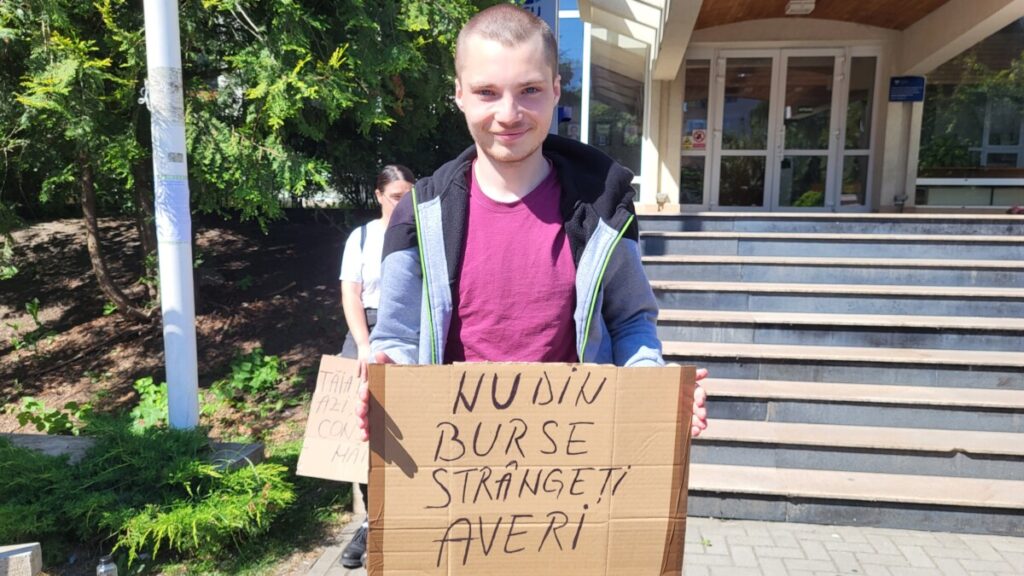 NU DIN
BURSE
STRÂNGEȚI
AVERI
TĂIA
AZI.
CON
MAI